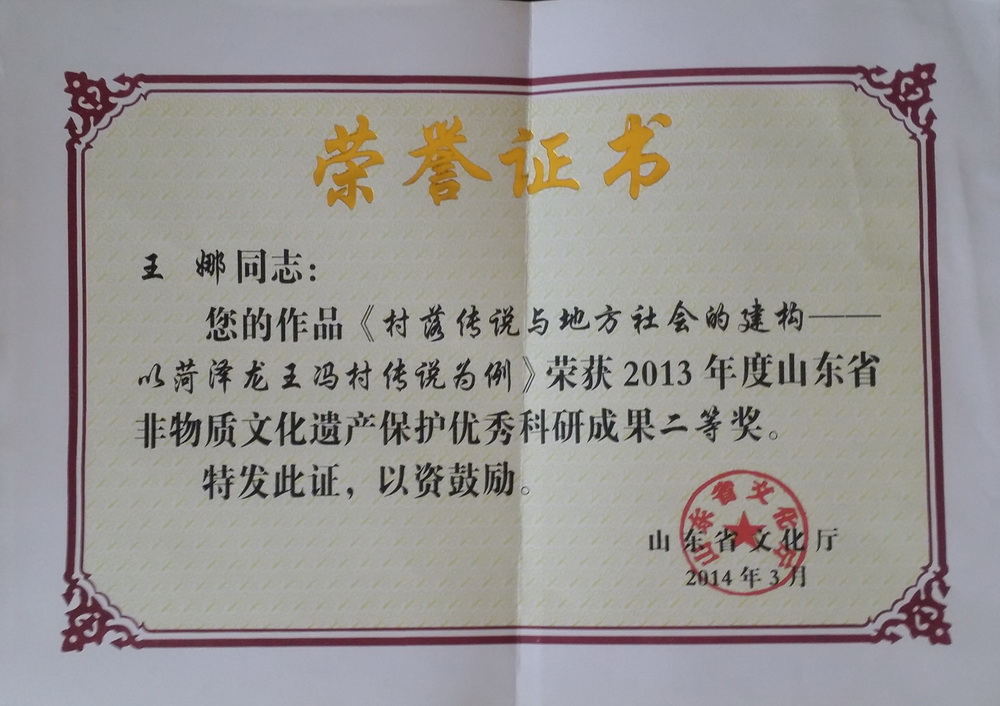 荣誉证书
王 娜同志：
您的作品《村落传说与地方社会的建构——
以菏泽龙王冯村传说为例》荣获 2013 年度山东省
非物质文化遗产保护优秀科研成果二等奖。
特发此证，以资鼓励。
山东省文化厅
山东省文化厅
2014 年 3 月